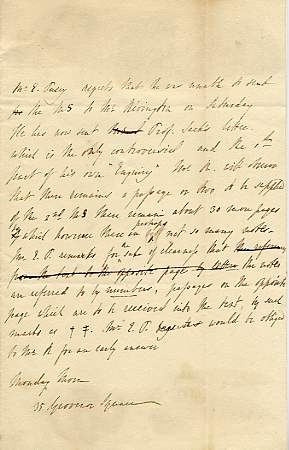 Mr. E. Pusey regrets that he was unable to send
the MS to Mr Rivington on Saturday
He has now sent Prof. Sack's letter
which is the only controversial and the 1st
part of his own "Enquiry" Mr R. will observe
that there remains a passage or two to be supplied
of the 2nd MS there remain about 30 more pages
which however there is perhaps not so many notes.
Mr. E. P. remarks for the sake of clearness that the references
from the text to the opposite pages by letters the notes
are referred to by numbers, passages on the opposite
page which are to be received into the text, by such
marks as + ‡. Mr. E. P. would be obliged
to Mr R for an early answer
Monday Morn
35 Grosvenor Square